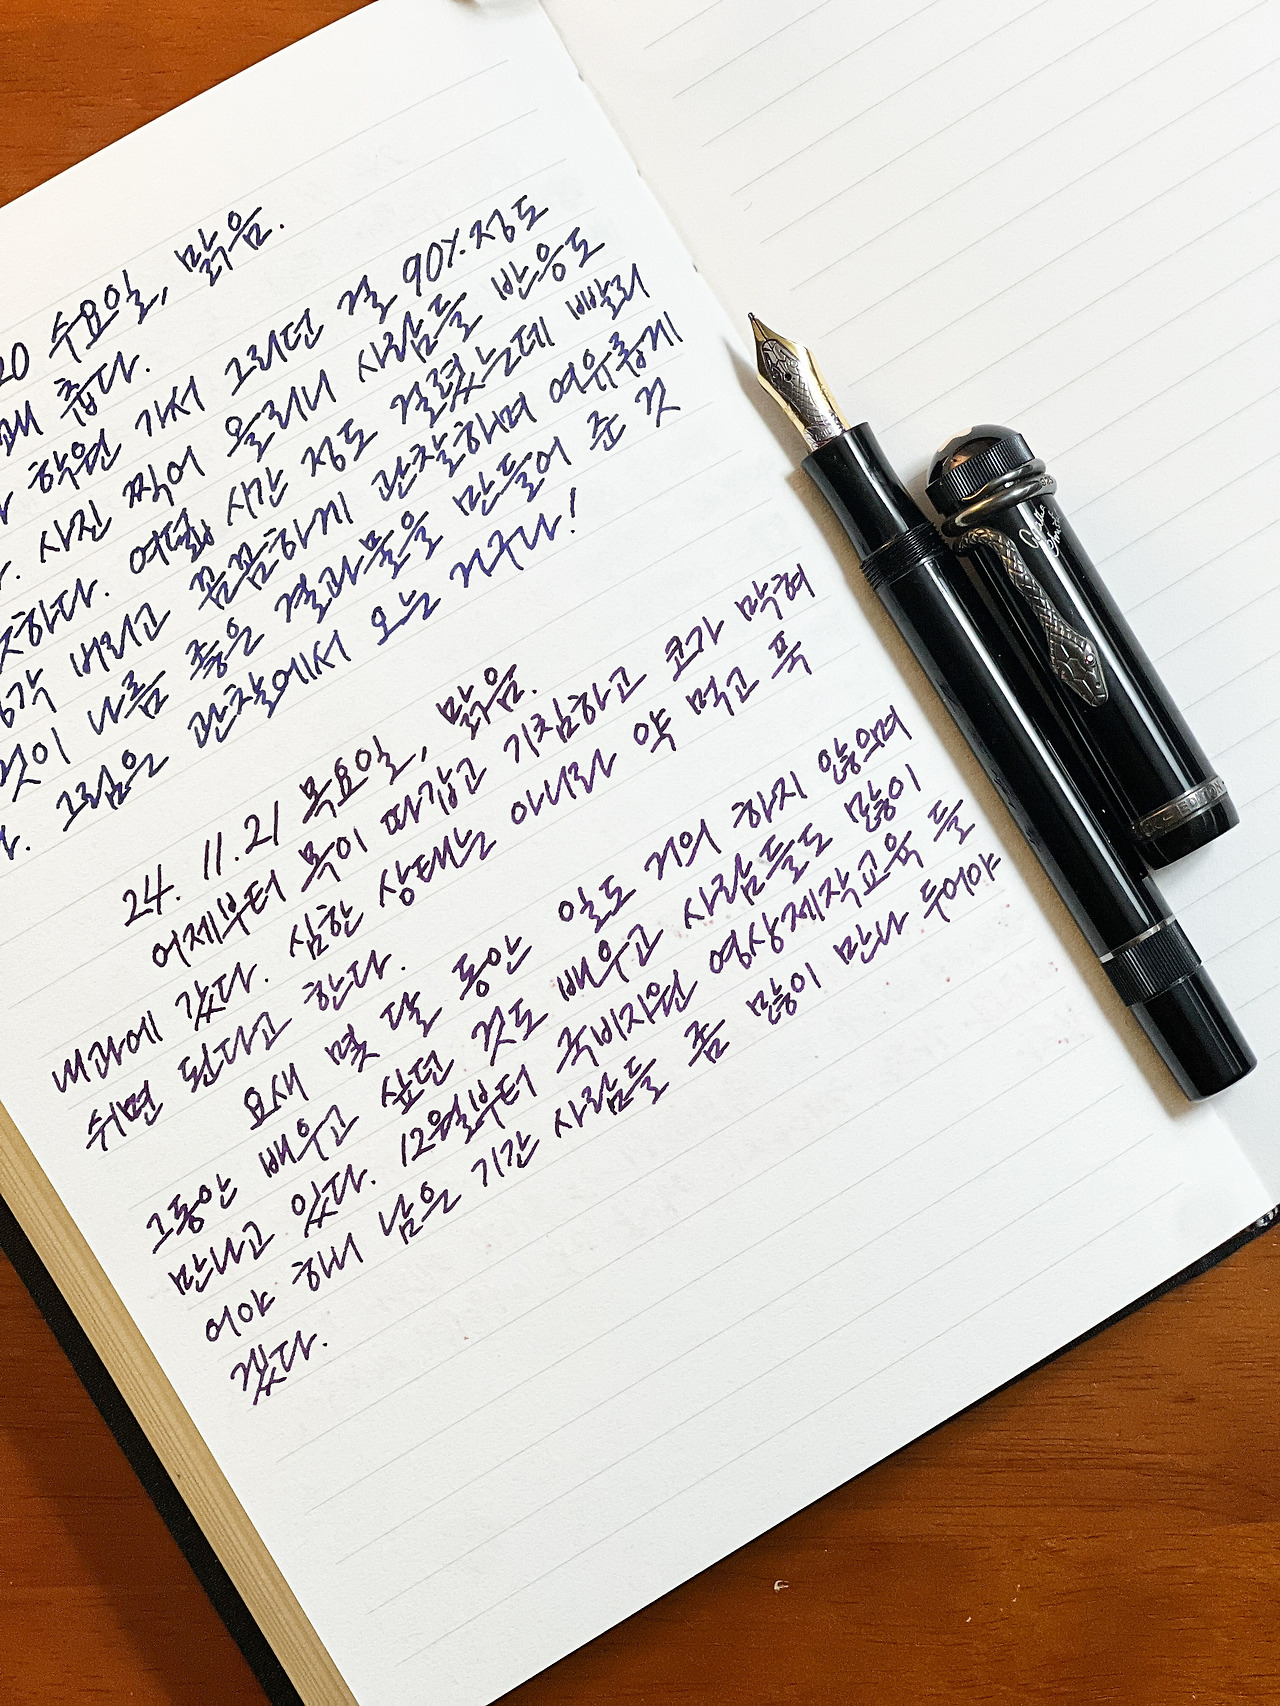 20 수요일, 맑음.
춥다.
학원 가서 그리던 걸 90% 정도
사진 찍어 올리니 사람들 반응도
하다. 여덟 시간 정도 걸렸는데 빨리
버리고 꼼꼼하게 관찰하며 여유롭게
것이 나름 좋은 결과물을 만들어 준 것
그림은 관찰에서 오는 거구나!
24. 11. 21 목요일, 맑음.
어제부터 목이 따갑고 기침하고 코가 막혀
내과에 갔다. 심한 상태는 아니라 약 먹고 푹
쉬면 된다고 한다.
요새 몇 달 동안 일도 거의 하지 않으며
그동안 배우고 싶던 것도 배우고 사람들도 많이
만나고 있다. 12월부터 국비지원 영상제작교육 들
어야 하니 남은 기간 사람들 좀 많이 만나 두어야
겠다.
EDITION